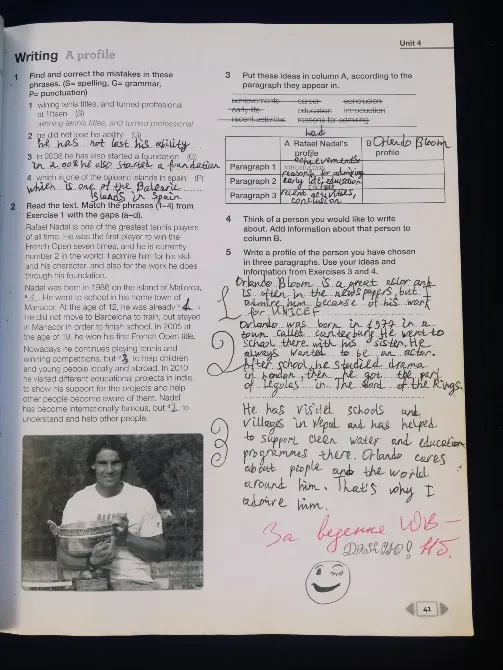 Unit 4
Writing A profile
1 Find and correct the mistakes in these
phrases. (S= spelling, G= grammar,
P= punctuation)
1 wining tenis titles, and turned proffesional
at fifteen (S)
winning tennis titles, and turned professional
2 he did not lose his ability (G)
he has not lost his ability
3 in 2008 he has also started a foundation (G)
in 2008 he also started a foundation
4 which is one of the baleares islands in spain (P)
which is one of the Balearic
Islands in Spain
2 Read the text. Match the phrases (1–4) from
Exercise 1 with the gaps (a–d).
Rafael Nadal is one of the greatest tennis players
of all time. He was the first player to win the
French Open seven times, and he is currently
number 2 in the world. I admire him for his skill
and his character, and also for the work he does
through his foundation.
Nadal was born in 1986 on the island of Mallorca,
. He went to school in his home town of
Manacor. At the age of 12, he was already
He did not move to Barcelona to train, but stayed
in Manacor in order to finish school. In 2005 at
the age of 19, he won his first French Open title.
Nowadays he continues playing tennis and
winning competitions, but 3 to help children
and young people locally and abroad. In 2010
he visited different educational projects in India
to show his support for the projects and help
other people become aware of them. Nadal
has become internationally famous, but to
understand and help other people.
3 Put these ideas in column A, according to the
paragraph they appear in.
achievements career conclusion
early life education introduction
recent activities reasons for admiring
had
A Rafael Nadal's
profile
B Orlando Bloom
profile
Paragraph 1 introduction
achievements
reasons for admiring
Paragraph 2 early life, education
Paragraph 3 recent activities,
conclusion
4 Think of a person you would like to write
about. Add information about that person to
column B.
5 Write a profile of the person you have chosen
in three paragraphs. Use your ideas and
information from Exercises 3 and 4.
1 Orlando Bloom is a great actor and
is often in the newspapers but I
admire him because of his work
for UNICEF
2 Orlando was born in 1977 in a
town called Canterbury. He went to
school there with his sister. He
always wanted to be an actor.
After school he studied drama
in London, then he got the part
of Legolas in The Lord of the Rings.
3 He has visited schools and
villages in Nepal and has helped
to support clean water and education
programmes there. Orlando cares
about people and the world
around him. That's why I
admire him.
За ведение WB –
45.
41